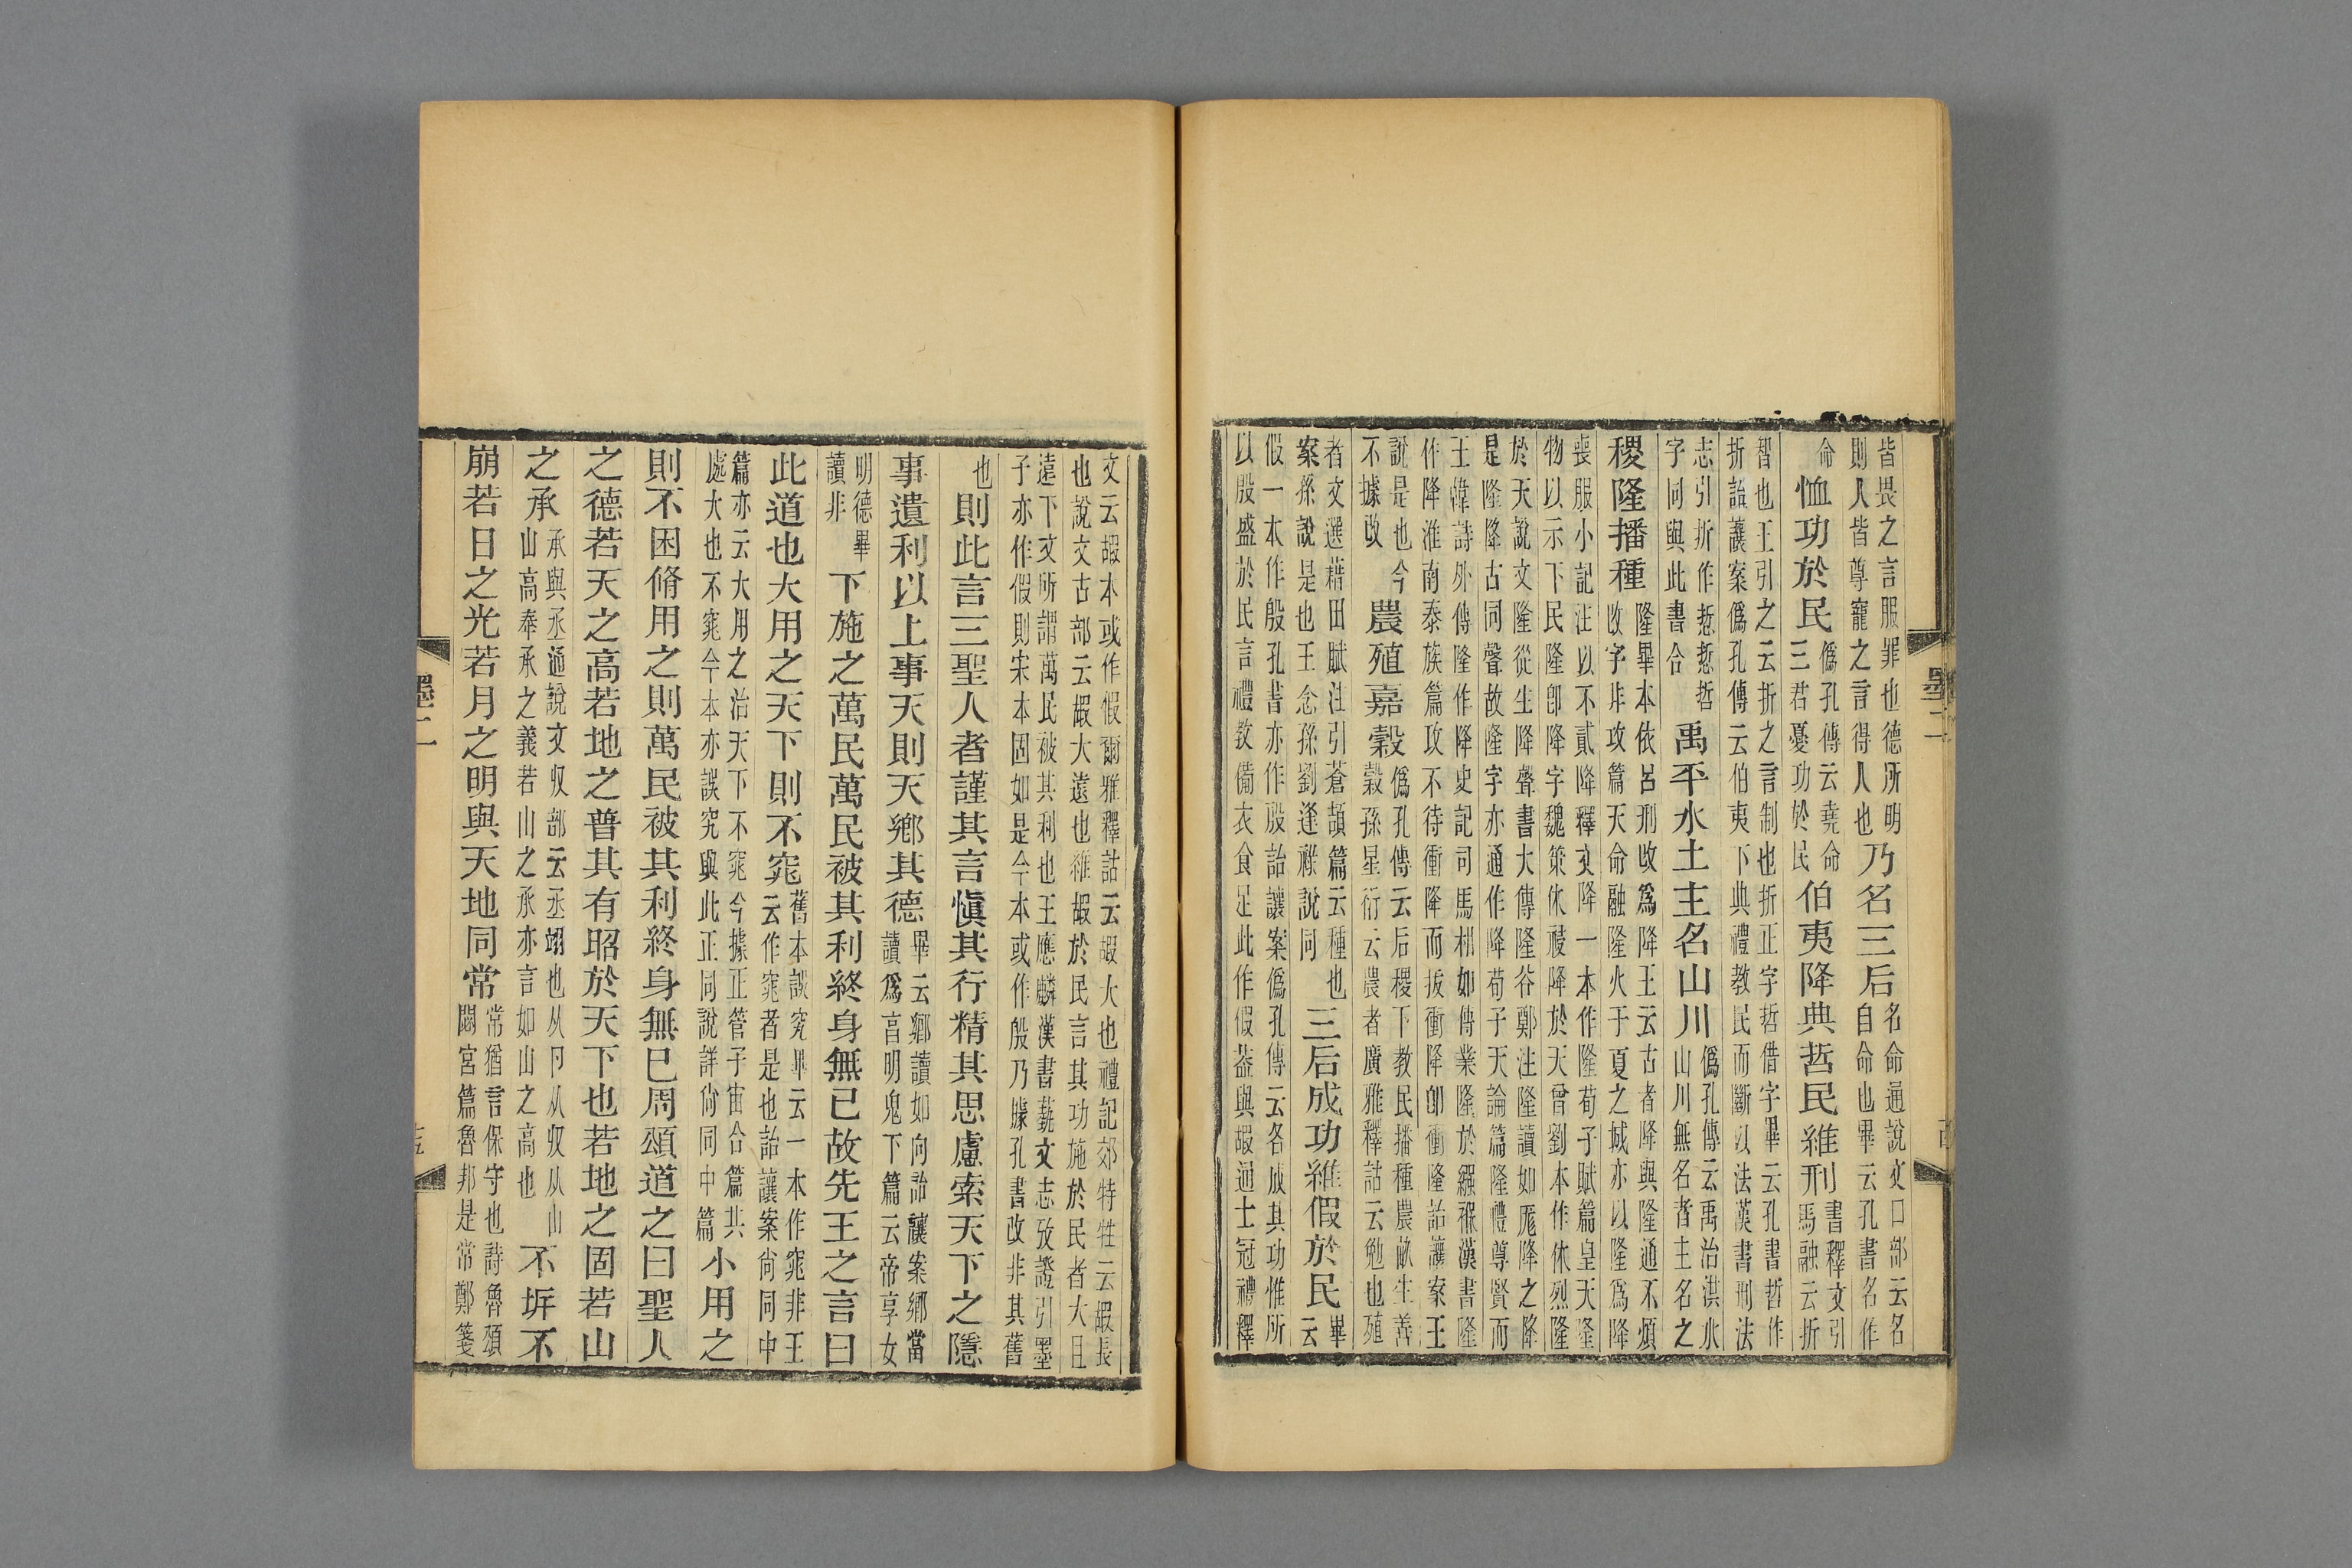 皆畏之言服罪也德所明
則人皆尊寵之言得人也
乃名三后
名命通說文口部云名
自命也畢云孔書名作
命
恤功於民
僞孔傳云堯命
三君憂功於民
伯夷降典哲民維刑
書釋文引
馬融云折
智也王引之云折之言制也折正字哲借字畢云孔書哲作
折詒讓案僞孔傳云伯夷下典禮教民而斷以法漢書刑法
志引折作悊悊哲
字同與此書合
禹平水土主名山川
僞孔傳云禹治洪水
山川無名者主名之
稷隆播種
隆畢本依呂刑改爲降王云古者降與隆通不煩
改字非攻篇天命融隆火于夏之城亦以隆爲降
喪服小記注以不貳降釋文降一本作隆荀子賦篇皇天隆
物以示下民隆卽降字魏策休祲降於天曾劉本作休烈隆
於天說文隆從生降聲書大傳隆谷鄭注隆讀如厖降之降
是隆降古同聲故隆字亦通作降荀子天論篇隆禮尊賢而
王韓詩外傳隆作降史記司馬相如傳業隆於繦褓漢書隆
作降淮南泰族篇攻不待衝降而拔衝降卽衝隆詒讓案王
說是也今
不據改
農殖嘉穀
僞孔傳云后稷下教民播種農畝生善
穀孫星衍云農者廣雅釋詁云勉也殖
者文選藉田賦注引蒼頡篇云種也
案孫說是也王念孫劉逢祿說同
三后成功維假於民
畢
云
假一本作殷孔書亦作殷詒讓案僞孔傳云各成其功惟所
以殷盛於民言禮教備衣食足此作假葢與嘏通士冠禮釋
文云嘏本或作假爾雅釋詁云嘏大也禮記郊特牲云嘏長
也說文古部云嘏大遠也維嘏於民言其功施於民者大且
遠下文所謂萬民被其利也王應麟漢書藝文志攷證引墨
子亦作假則宋本固如是今本或作殷乃據孔書改非其舊
也
則此言三聖人者謹其言愼其行精其思慮索天下之隱
事遺利以上事天則天鄉其德
畢云鄉讀如向詒讓案鄉當
讀爲享明鬼下篇云帝享女
明德畢
讀非
下施之萬民萬民被其利終身無已故先王之言曰
此道也大用之天下則不窕
舊本誤究畢云一本作窕非王
云作窕者是也詒讓案尙同中
篇亦云大用之治天下不窕今據正管子宙合篇其
處大也不窕今本亦誤究與此正同說詳尙同中篇
小用之
則不困脩用之則萬民被其利終身無已周頌道之曰聖人
之德若天之高若地之普其有昭於天下也若地之固若山
之承
承與丞通說文収部云丞翊也从卪从収从山
山高奉承之義若山之承亦言如山之高也
不坼不
崩若日之光若月之明與天地同常
常猶言保守也詩魯頌
閟宮篇魯邦是常鄭箋
墨二